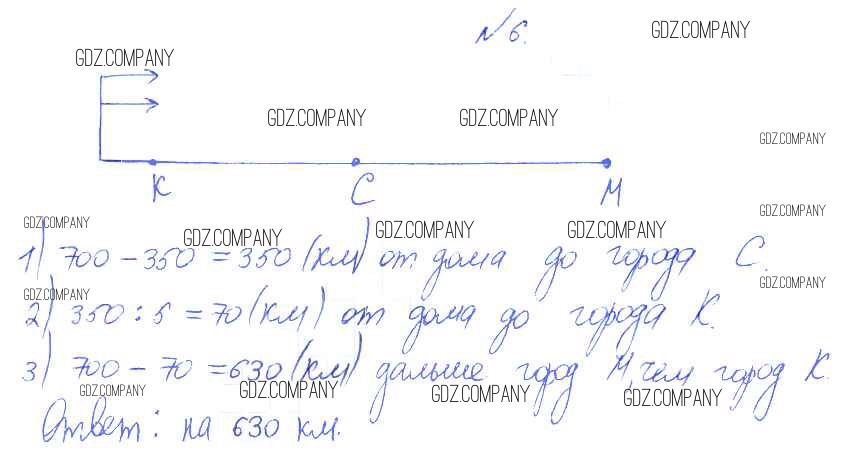 № 6.
GDZ.COMPANY
GDZ.COMPANY
GDZ.COMPANY GDZ.COMPANY
GDZ.COMPANY
К С М
GDZ.COMPANY
GDZ.COMPANY
GDZ.COMPANY GDZ.COMPANY GDZ.COMPANY
1) 700 - 350 = 350 (км) от дома до города С.
GDZ.COMPANY
GDZ.COMPANY
2) 350 : 5 = 70 (км) от дома до города К.
3) 700 - 70 = 630 (км) дальше город М, чем город К.
GDZ.COMPANY GDZ.COMPANY GDZ.COMPANY GDZ.COMPANY
Ответ: на 630 км.